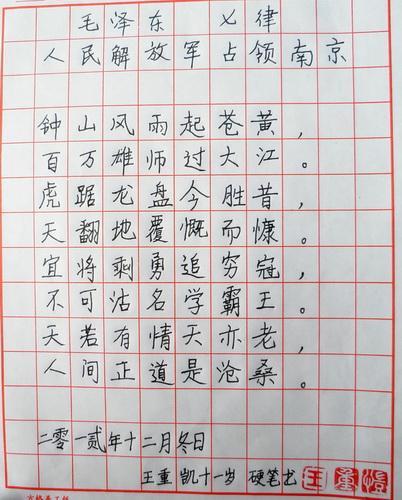 毛泽东 七律
人民解放军占领南京
钟山风雨起苍黄,
百万雄师过大江。
虎踞龙盘今胜昔,
天翻地覆慨而慷。
宜将剩勇追穷寇,
不可沽名学霸王。
天若有情天亦老,
人间正道是沧桑。
二零一贰年十二月冬日
王重凯十一岁 硬笔书
王重恺